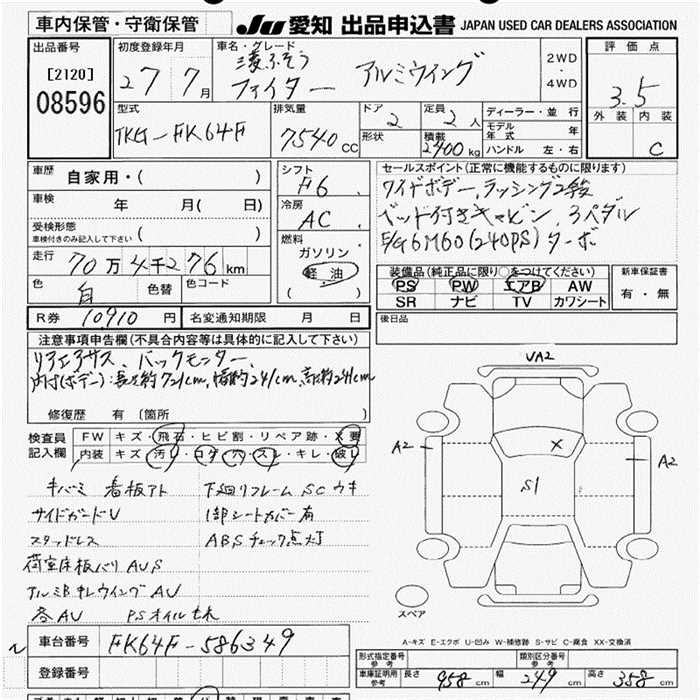 車内保管・守衛保管
JU 愛知 出品申込書 JAPAN USED CAR DEALERS ASSOCIATION
出品番号 初度登録年月 車名・グレード 2WD・4WD 評価点
[2120] 08596
27 7月
三菱ふそう ファイター アルミウイング
3.5
外装 内装
C
型式 排気量 ドア 定員 ディーラー・並行
TKG-FK64F 7540cc 2 2人
モデル年式 年
形状 積載 2400kg ハンドル 左・右
車歴 自家用・( )
シフト F6
セールスポイント(正常に機能するものに限ります)
ワイドボデー、ラッシング2段
ベッド付きキャビン、3ペダル
E/G6M60(240PS)ターボ
車検 年 月( 日)
冷房 AC
受検形態 車検付きのみ記入して下さい ( )
燃料 ガソリン 軽油 ( )
走行 70万4千276km
装備品(純正品に限り○をつけてください) 新車保証書
PS PW エアB AW 有・無
SR ナビ TV カワシート
色 白 色替 色コード
R券 10910円 名変通知期限 月 日
後日品
注意事項申告欄(不具合内容等は具体的に記入して下さい)
リアエアサス、バックモニター、
内寸(ボデー):長さ約721cm、幅約241cm、高さ約241cm
修復歴 有 〔箇所
検査員記入欄 FW キズ・飛石・ヒビ割・リペア跡・X要
内装 キズ・汚レ・コゲ・穴・スレ・キレ・破レ
キバミ 看板アト 下廻リフレームSCウキ
サイドガードU 1部シートカバー有
スタッドレス ABSチェック点灯
荷室床板バリAUS
アルミBキレウイングAU
各AU PSオイルモレ
VA2
A2
A2
X
S1
スペア
A-キズ E-エクボ U-凹み W-補修跡 S-サビ C-腐食 XX-交換済
車台番号 FK64F-586349
登録番号
形式指定番号 参考 類別区分番号 参考
車庫証明用 参考 長さ 958cm 幅 249cm 高さ 358cm